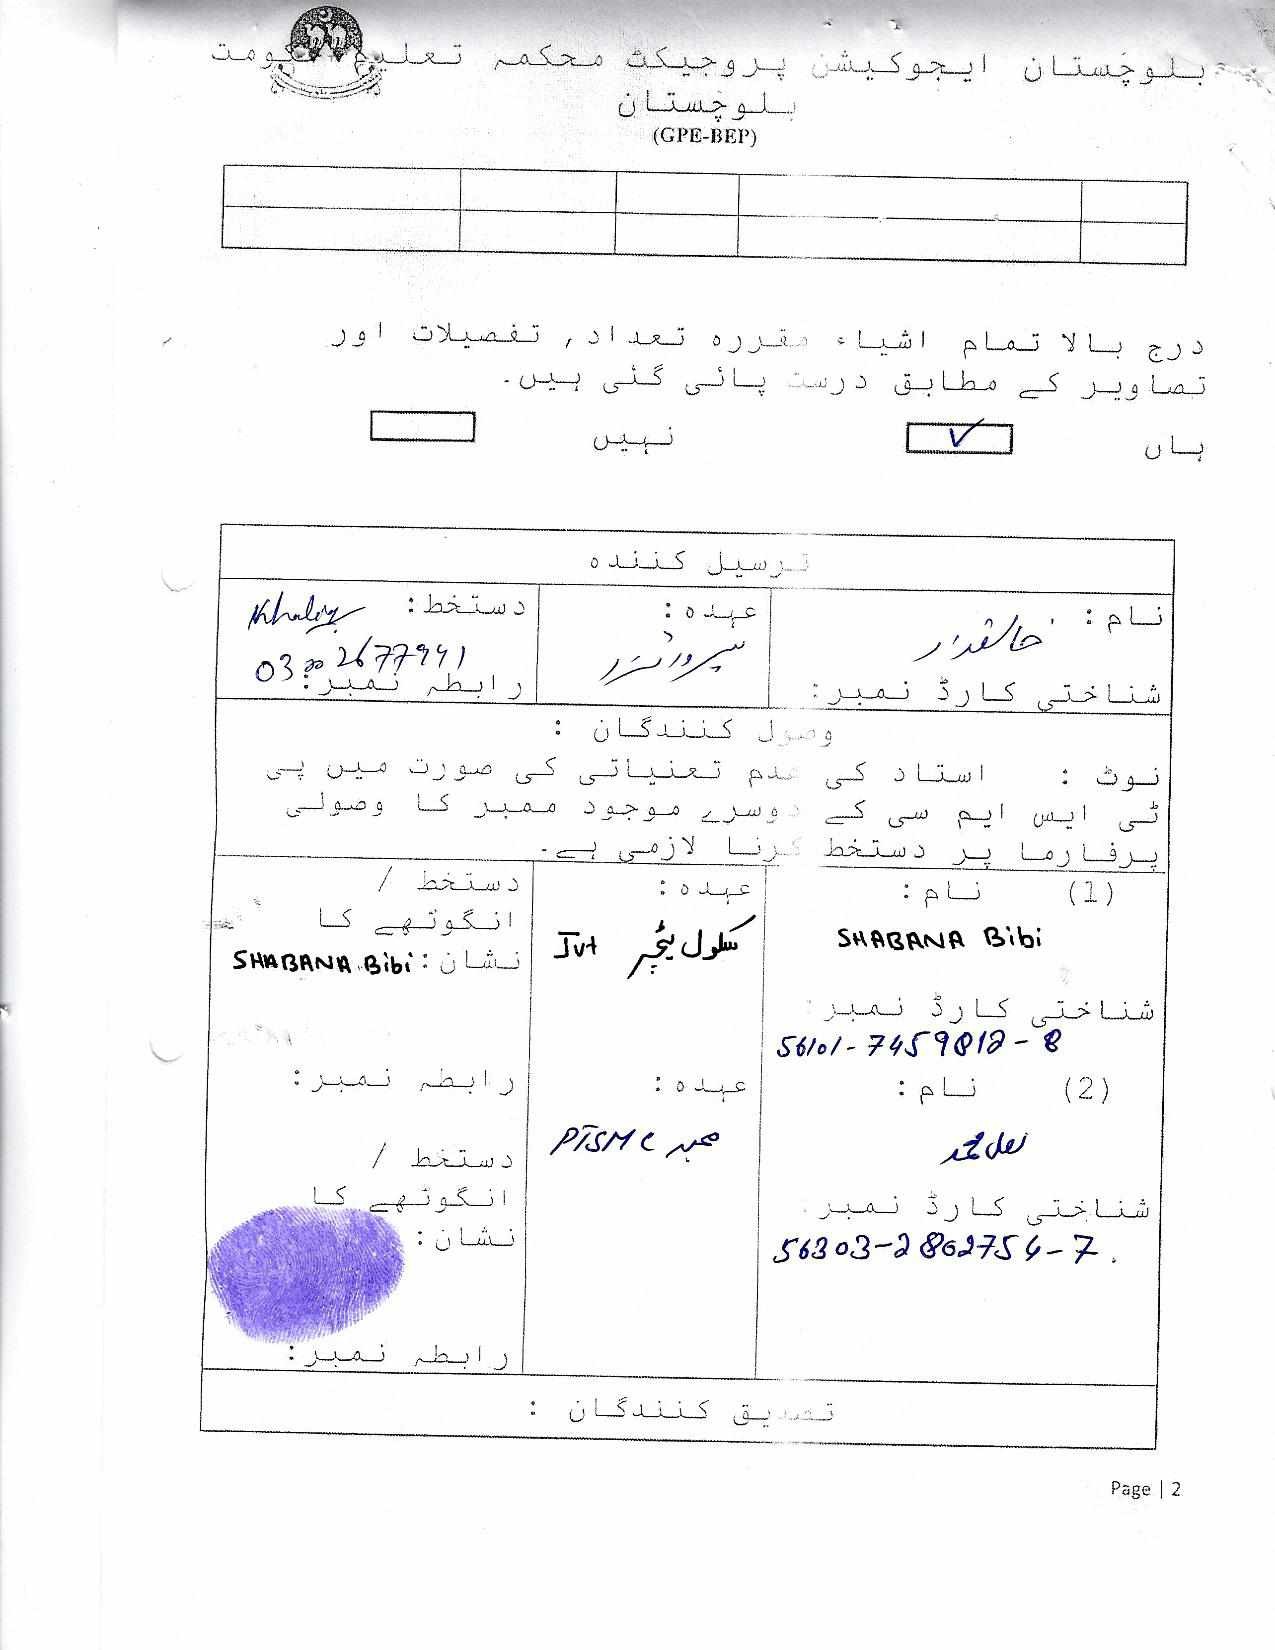 بلوچستان ایجوکیشن پروجیکٹ محکمہ تعلیم حکومت
بلوچستان
(GPE-BEP)
درج بالا تمام اشیاء مقررہ تعداد, تفصیلات اور
تصاویر کے مطابق درست پائی گئی ہیں۔
ہاں ✓ نہیں
ترسیل کنندہ
نام : عہدہ : دستخط :
سپروائزر
شناختی کارڈ نمبر: رابطہ نمبر:
وصول کنندگان :
نوٹ : استاد کی عدم تعنیاتی کی صورت میں پی
ٹی ایس ایم سی کے دوسرے موجود ممبر کا وصولی
پرفارما پر دستخط کرنا لازمی ہے۔
(1) نام : عہدہ : دستخط /
انگوٹھے کا
SHABANA Bibi سکول ٹیچر Jvt
نشان : SHABANA Bibi
شناختی کارڈ نمبر :
رابطہ نمبر :
(2) نام : عہدہ :
PTSMC ممبر
دستخط /
انگوٹھے کا
نشان :
شناختی کارڈ نمبر :
رابطہ نمبر :
تصدیق کنندگان :
Page | 2